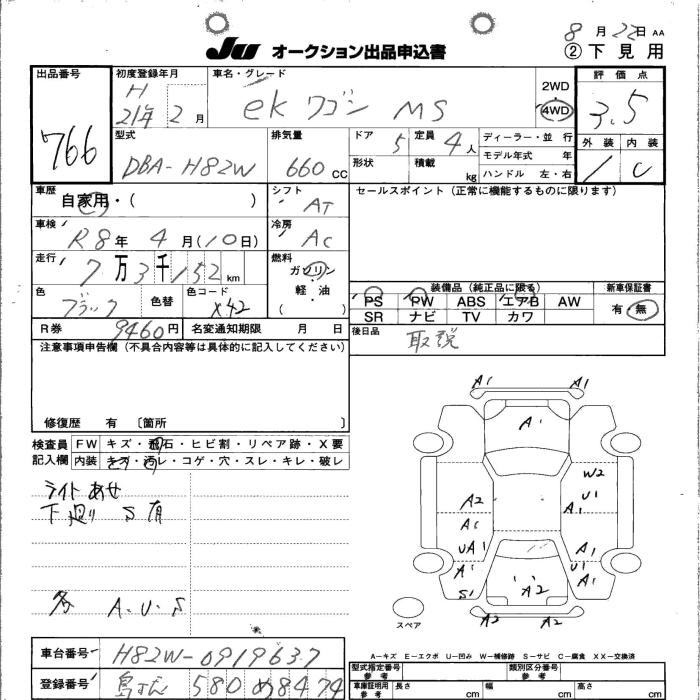 8月22日 AA
JU オークション出品申込書 ②下見用
出品番号 初度登録年月 車名・グレード 2WD 評価点
766 H 21年2月 ekワゴン MS 4WD 3.5
型式 排気量 ドア 定員 ディーラー・並行 外装 内装
DBA-H82W 660cc 5 4人 モデル年式 年 1 C
形状 積載 kg ハンドル 左・右
車歴 シフト セールスポイント(正常に機能するものに限ります)
自家用・( ) AT
車検 冷房
R8年4月(10日) AC
走行 燃料
7万3千152km ガソリン
色 色替 色コード 軽・油 装備品(純正品に限る) 新車保証書
ブラック X42 ( ) PS PW ABS エアB AW 有・無
SR ナビ TV カワ
R券 9460円 名変通知期限 月 日 後日品 取説
注意事項申告欄(不具合内容等は具体的に記入してください)
修復歴 有 〔箇所 〕
検査員 FW キズ・飛石・ヒビ割・リペア跡・X要
記入欄 内装 キズ・汚レ・コゲ・穴・スレ・キレ・破レ
ライトあせ
下廻り S有
多 A.U.S
A1 A1
A1
W2
U1
A2 A1
A1
UA1 A1
A1 U1
S1 A1
A2
A2 A2
スペア
A－キズ E－エクボ U－凹み W－補修跡 S－サビ C－腐食 XX－交換済
車台番号 H82W-0919637 型式指定番号 参考 類別区分番号 参考
登録番号 580 め8474 車庫証明用 参考 長さ cm 幅 cm 高さ cm